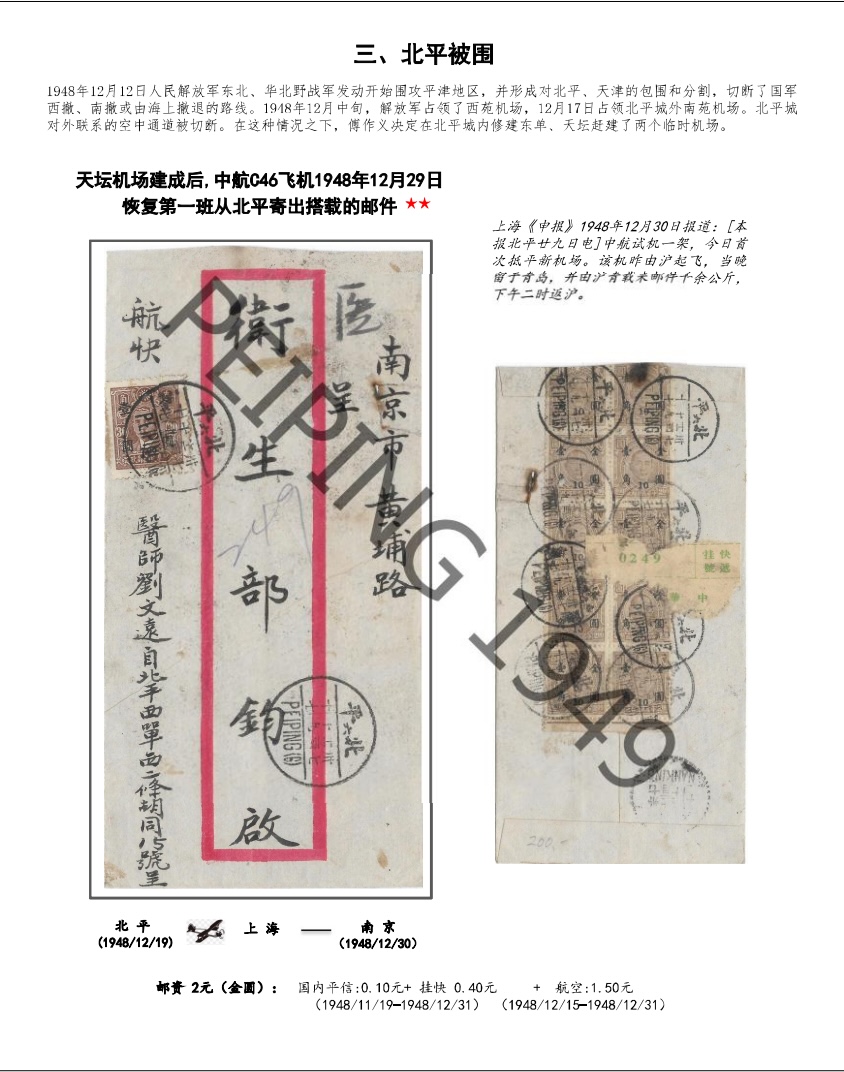 三、北平被围
1948年12月12日人民解放军东北、华北野战军发动开始围攻平津地区，并形成对北平、天津的包围和分割，切断了国军
西撤、南撤或由海上撤退的路线。1948年12月中旬，解放军占领了西苑机场，12月17日占领北平城外南苑机场。北平城
对外联系的空中通道被切断。在这种情况之下，傅作义决定在北平城内修建东单、天坛赶建了两个临时机场。
天坛机场建成后,中航C46飞机1948年12月29日
恢复第一班从北平寄出搭载的邮件 ★★
上海《申报》1948年12月30日报道：[本
报北平廿九日电]中航试机一架，今日首
次抵平新机场。该机昨由沪起飞，当晚
留于青岛，并由沪青载来邮件千余公斤，
下午二时返沪。
医
南京市黄埔路
呈
衛生部鈞啟
航快
醫師劉文遠自北平西單西二條胡同15號呈
249
PEIPING
北平
PEIPING(6)
北平
PEIPING(6)
北平
PEIPING(6)
0249
挂快
號遞
中
NANKING
200.-
PEIPING 1949
北 平
上 海
南 京
(1948/12/19)
(1948/12/30)
邮资 2元（金圆）： 国内平信:0.10元+ 挂快 0.40元 + 航空:1.50元
(1948/11/19—1948/12/31) (1948/12/15—1948/12/31)